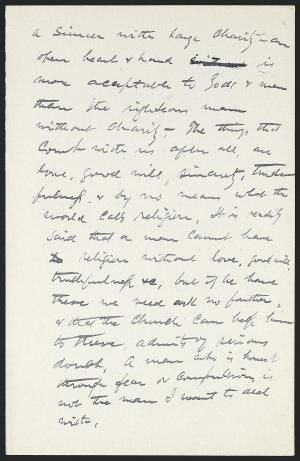 a sinner with large charity – an
open heart & hand is
more acceptable to God & men
than the righteous man
without charity – The things that
count with us, after all, are
love, good will, sincerity, truth-
fulness, & by no means what the
world calls religion, It is
said that a man cannot have
religion without love, good will,
truthfulness &c, but if he have
these we need ask no farther,
& that the Church can help him
to these, admits of serious
doubt, A man who is honest
through fear or compulsion, is
not the man I want to deal
with,